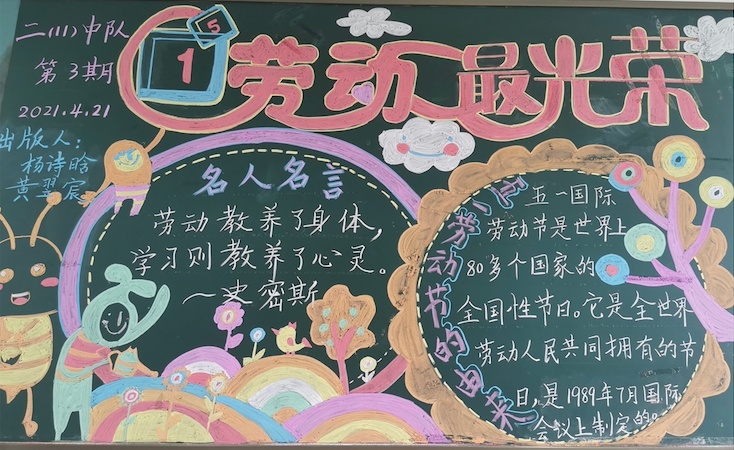 二(11)中队
第3期
2021.4.21
出版人:
杨诗晗
黄翌宸
5
1
劳动最光荣
名人名言
劳动教养了身体,
学习则教养了心灵。
—史密斯
劳动节的由来
五一国际
劳动节是世界上
80多个国家的
全国性节日。它是全世界
劳动人民共同拥有的节
日,是1989年7月国际
会议上制定的。